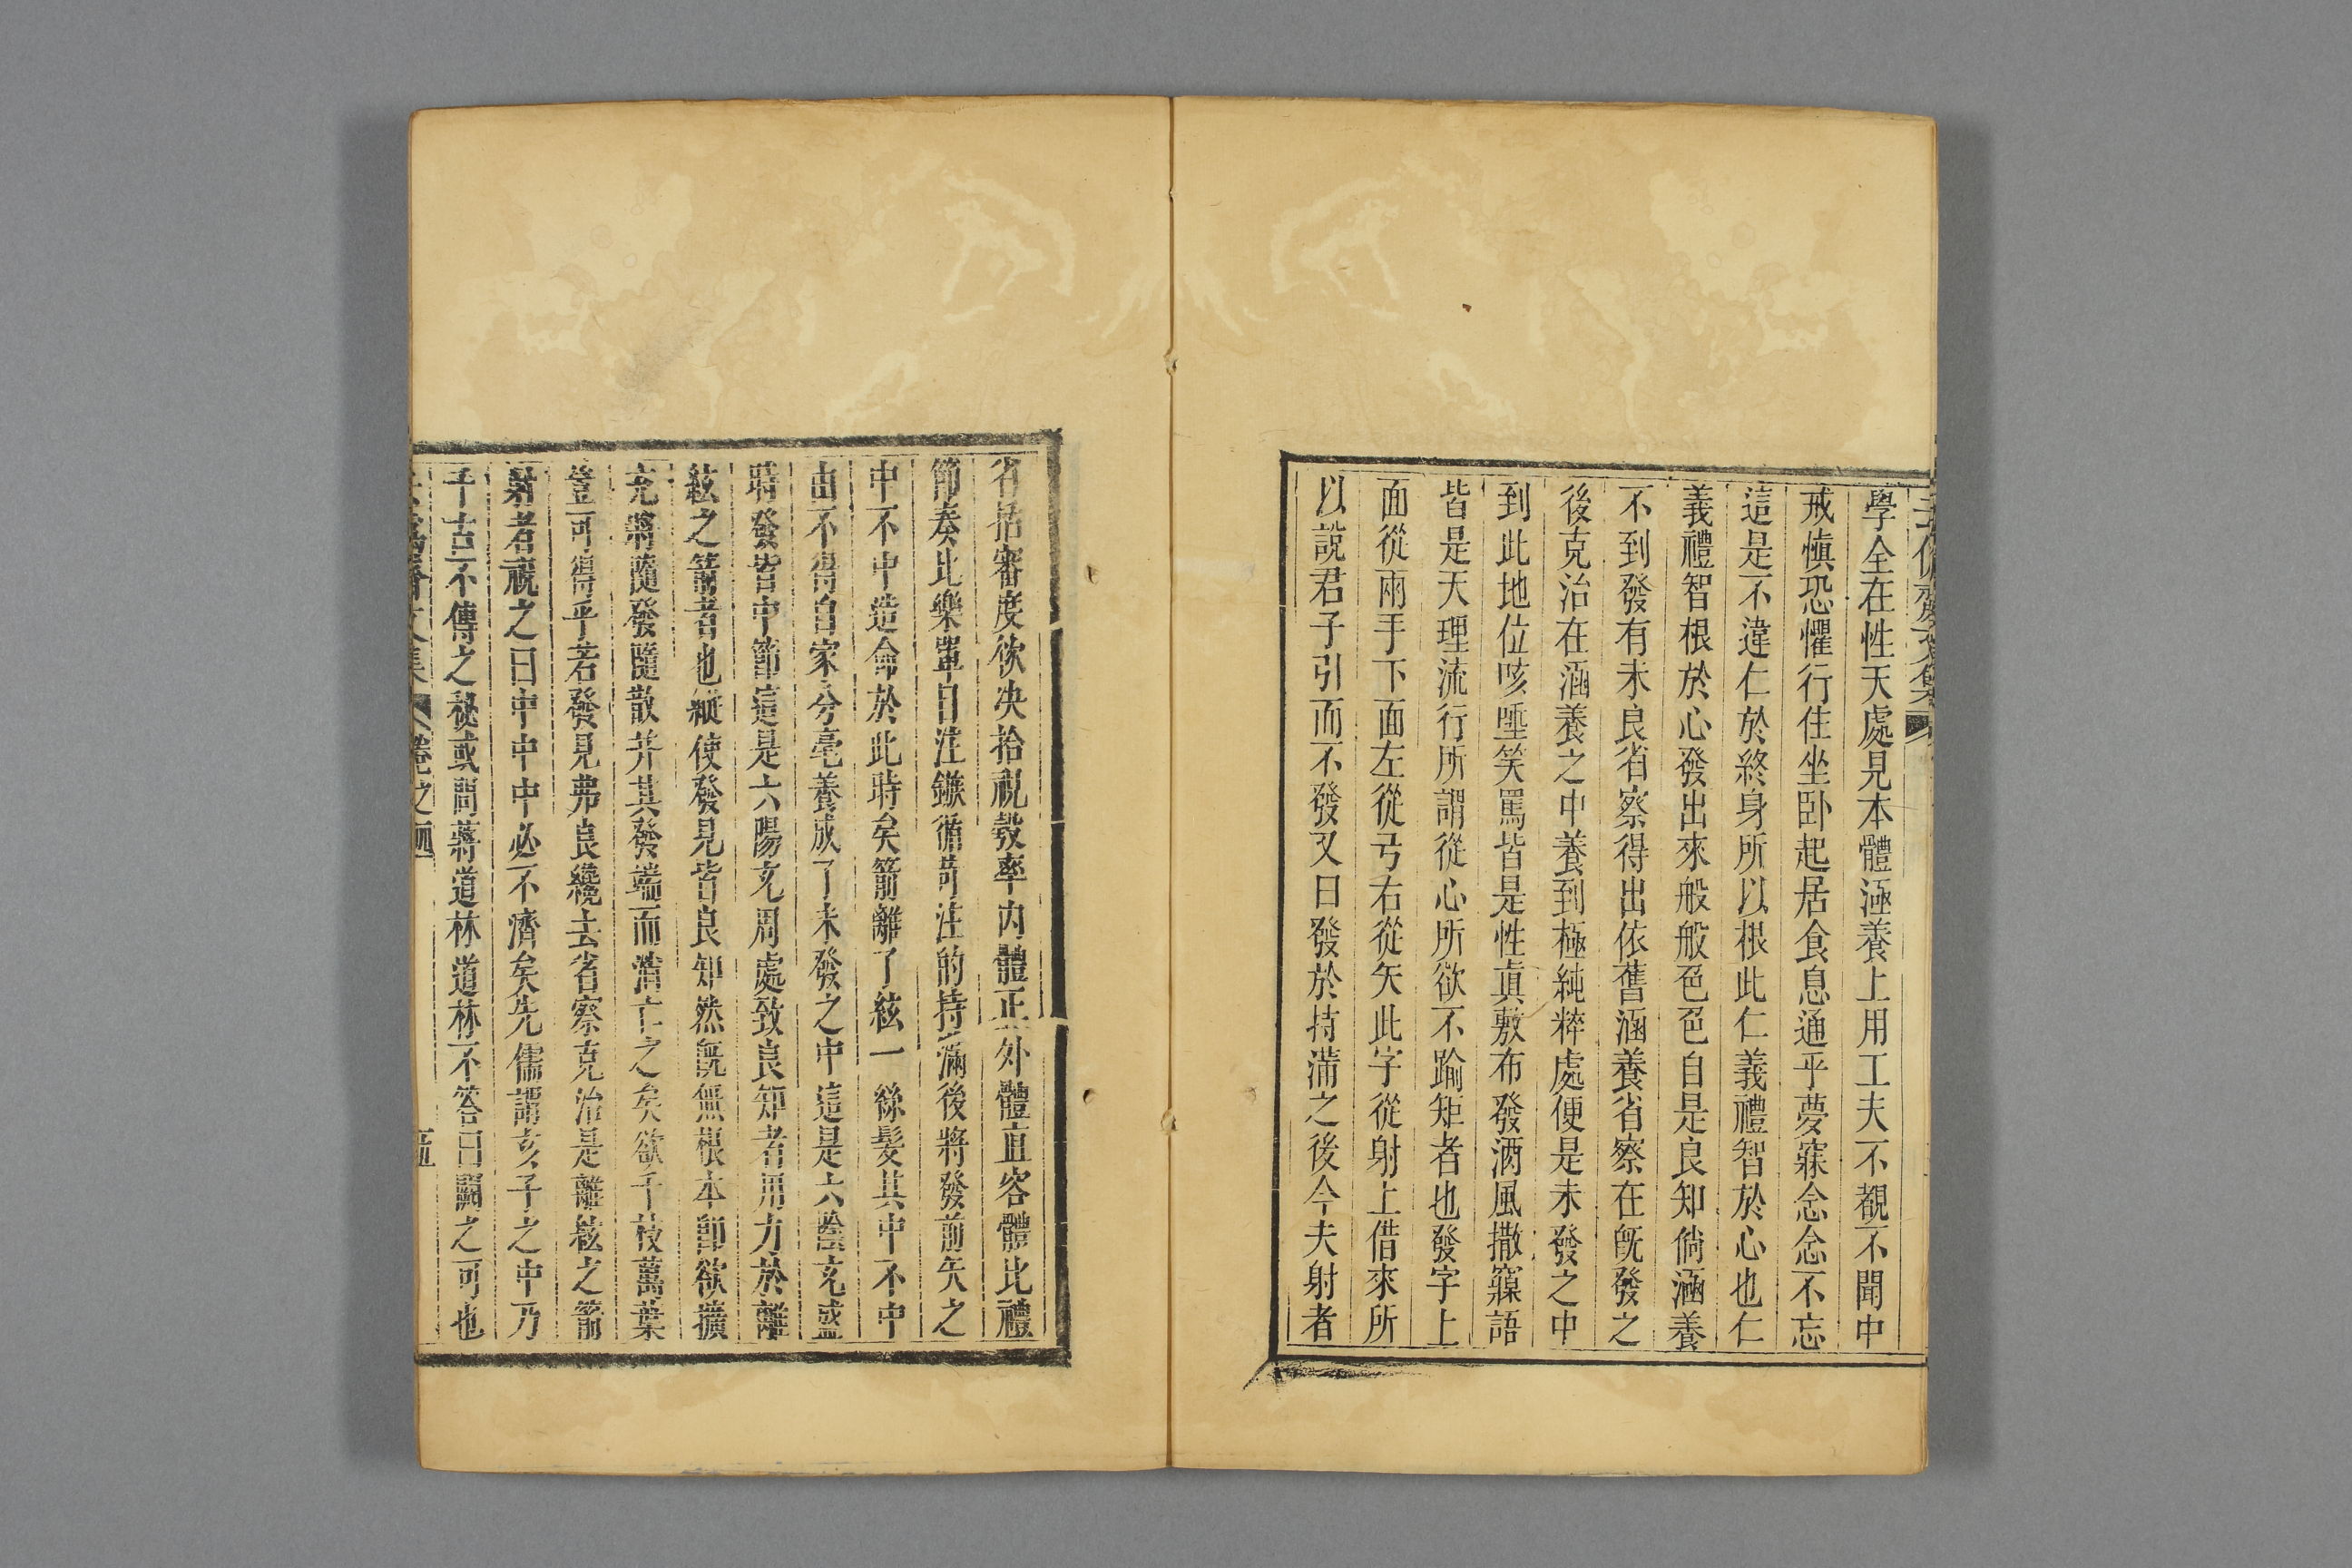 學全在性天處見本體涵養上用工夫不覩不聞中
戒慎恐懼行住坐卧起居食息通乎夢寐念念不忘
這是不違仁於終身所以根此仁義禮智於心也仁
義禮智根於心發出來般般色色自是良知倘涵養
不到發有未良省察得出依舊涵養省察在既發之
後克治在涵養之中養到極純粹處便是未發之中
到此地位咳唾笑罵皆是性真敷布發洒風撒寱語
皆是天理流行所謂從心所欲不踰矩者也發字上
面從兩手下面左從弓右從矢此字從射上借來所
以說君子引而不發又曰發於持滿之後今夫射者
省括審度佽決拾視彀率内體正外體直容體比禮
節奏比樂單目注鏃循笴注的持滿後將發前矢之
中不中造侖於此時矣箭離了絃一絲髮其中不中
由不得自家分毫養成了未發之中這是六陰充盛
時發皆中節這是六陽充周處致良知者用力於離
絃之箭者也縱使發見皆良知然既無根本卽欲擴
充將隨發隨散并其發端而消亡之矣欲千枝萬葉
豈可得乎若發見弗良纔去省察克治是離絃之箭
射者祝之曰中中中必不濟矣先儒謂亥子之中乃
千古不傳之秘或問蔣道林道林不答曰闕之可也
文集 卷之 五